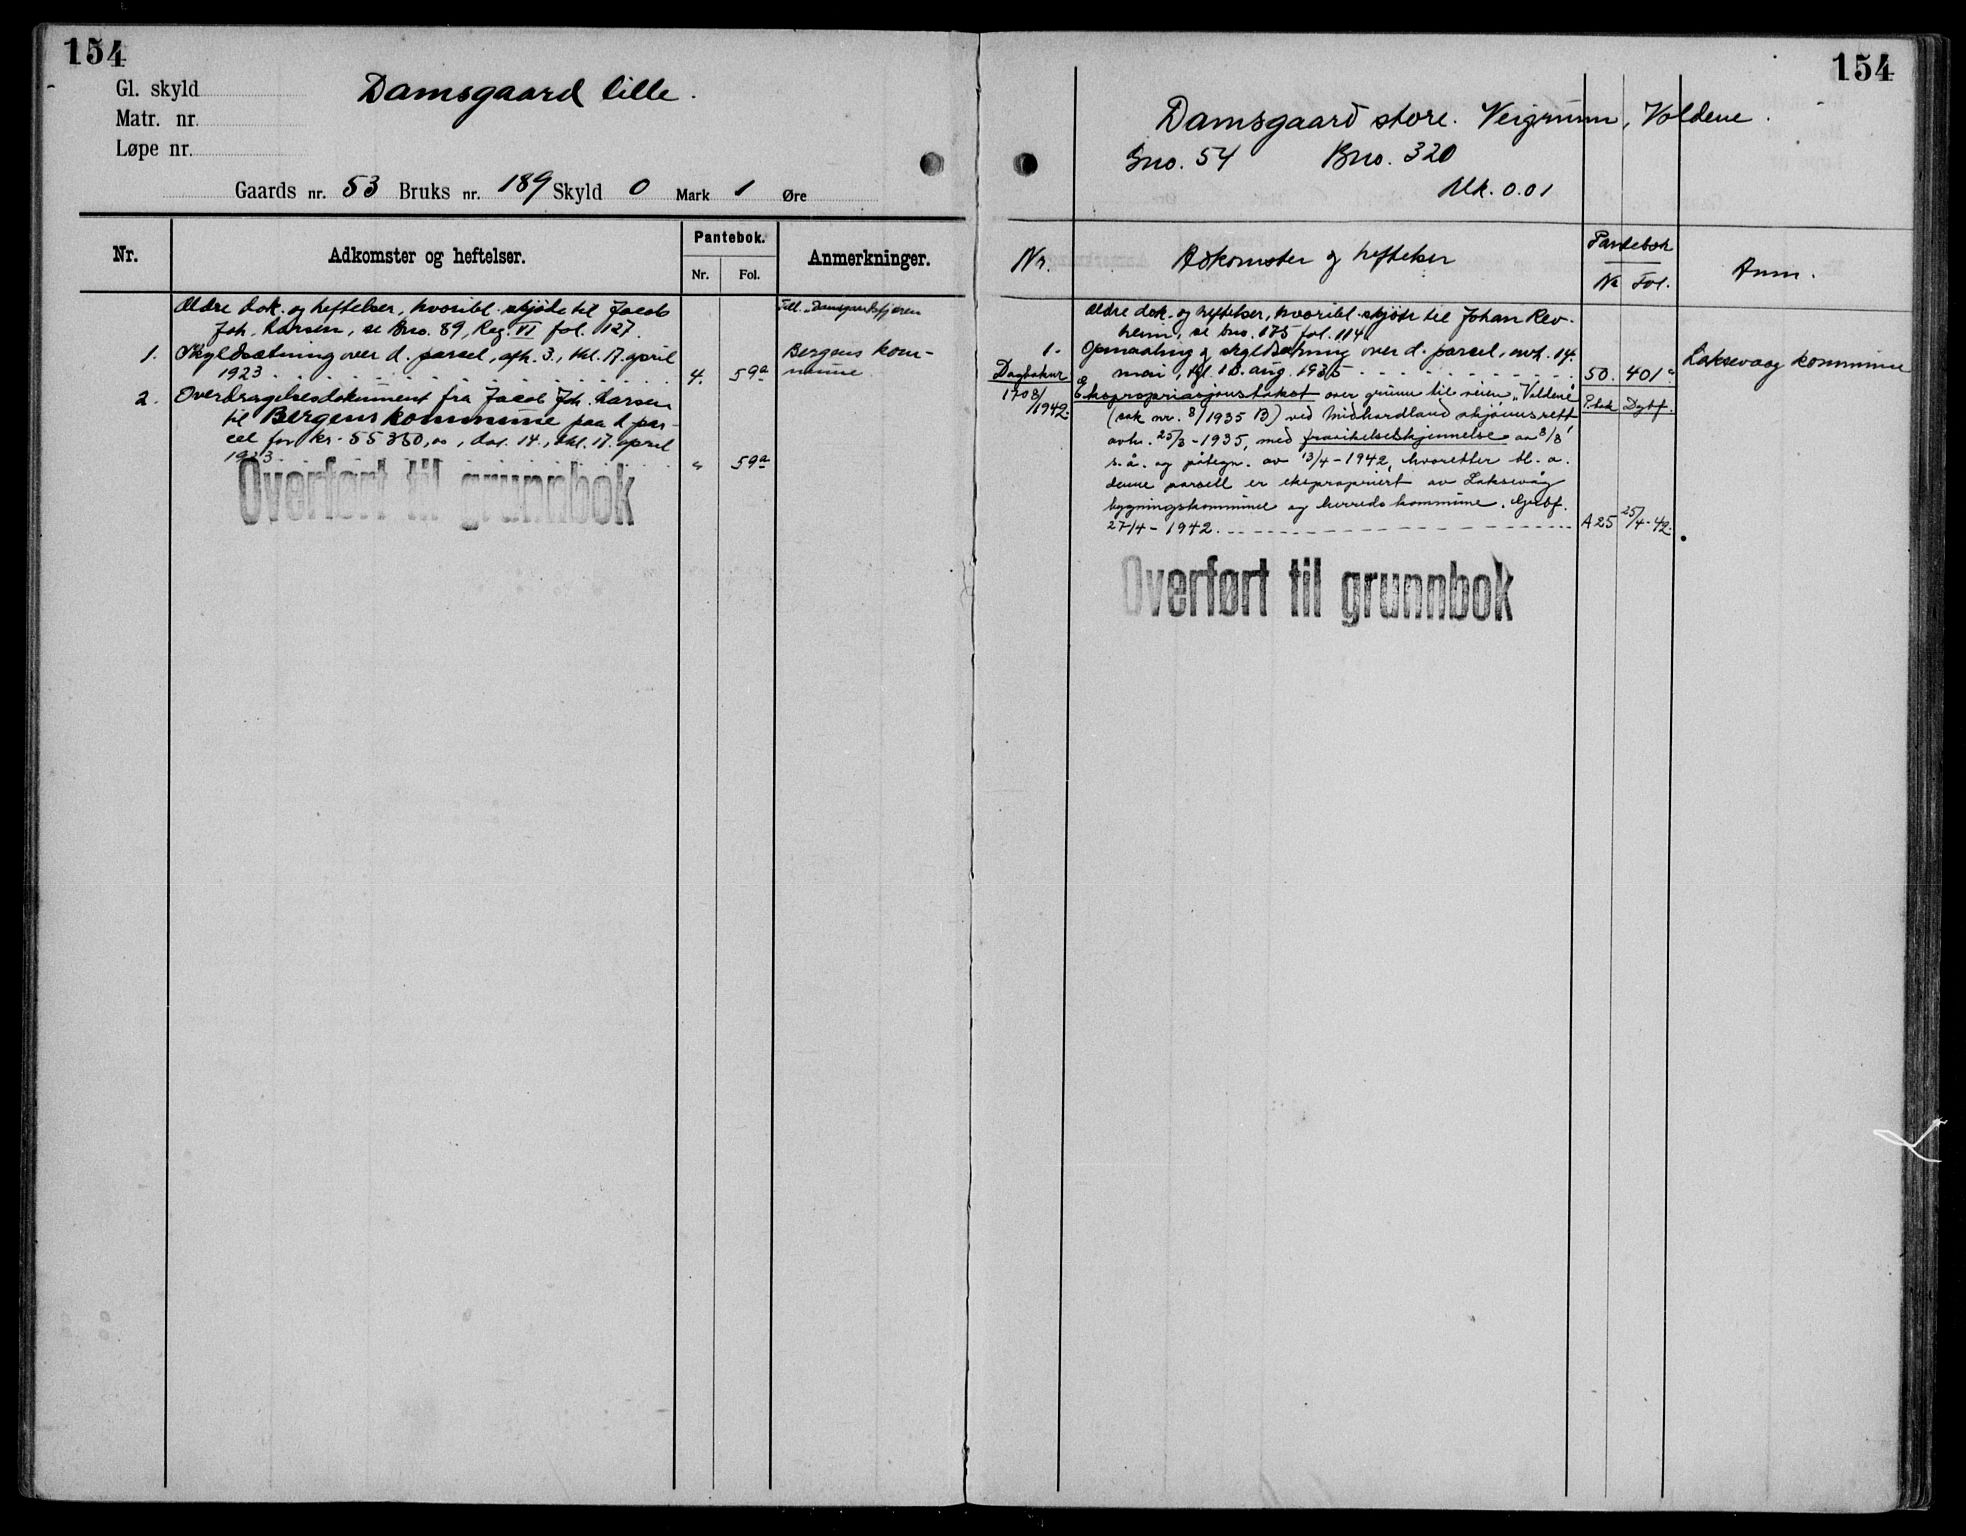 154
Gl. skyld
Matr. nr.
Løpe nr.
Damsgaard lille.
Gaards nr. 53 Bruks nr. 189 Skyld 0 Mark 1 Øre
Nr.
Adkomster og heftelser.
Pantebok.
Nr. Fol.
Anmerkninger.
Ældre dok. og heftelser, hvoribl. skjøde til Jacob
Joh. Larsen, se Bno. 89, Reg. VI fol. 127.
1. Skyldsætning over d. parsel, afh. 3., tkl. 17. april
1923 4. 59a
2. Overdragelsesdokument fra Jacob Joh. Larsen
til Bergens kommune paa d. par-
cel for kr. 55350,00, dat. 14., tkl. 17. april
1923 " 59a
Bergens kom-
mune
Overført til grunnbok
154
Damsgaard store. Veigrunn, Voldene.
Gno. 54 Bno. 320
Mk. 0.01
Nr.
Adkomster og heftelser
Pantebok
Nr Fol.
Anm.
Ældre dok. og heftelser, hvoribl. skjøte til Johan Rev-
heim, se bno. 175 fol. 114a
1. Opmaaling og skyldsætning over d. parsel, avh. 14.
mai, tgl. 10. aug. 1935 50. 401a
Laksevaag kommune
Dagboknr
1708/1942.
P.bok Dagbf.
Ekspropriasjonstakst over grunn til veien "Voldene"
(sak nr. 8/1935 B) ved Midhordland skjønnsrett
avh. 25/3-1935, med fravikelseskjennelse av 8/8
s.å. og påtegn. av 13/4-1942, hvoretter bl. a.
denne parsell er ekspropriert av Laksevåg
bygningskommune og herredskommune.
27/4-1942. A25 25/4-42.
Overført til grunnbok